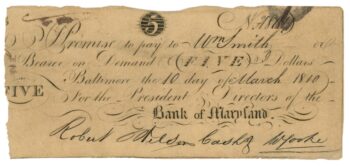 5
I Promise to pay to Wm Smith or
Bearer on Demand (FIVE) Dollars
Baltimore the 10 day of March 1810
FIVE For the President & Directors of the
Bank of Maryland.
Robert Cashr